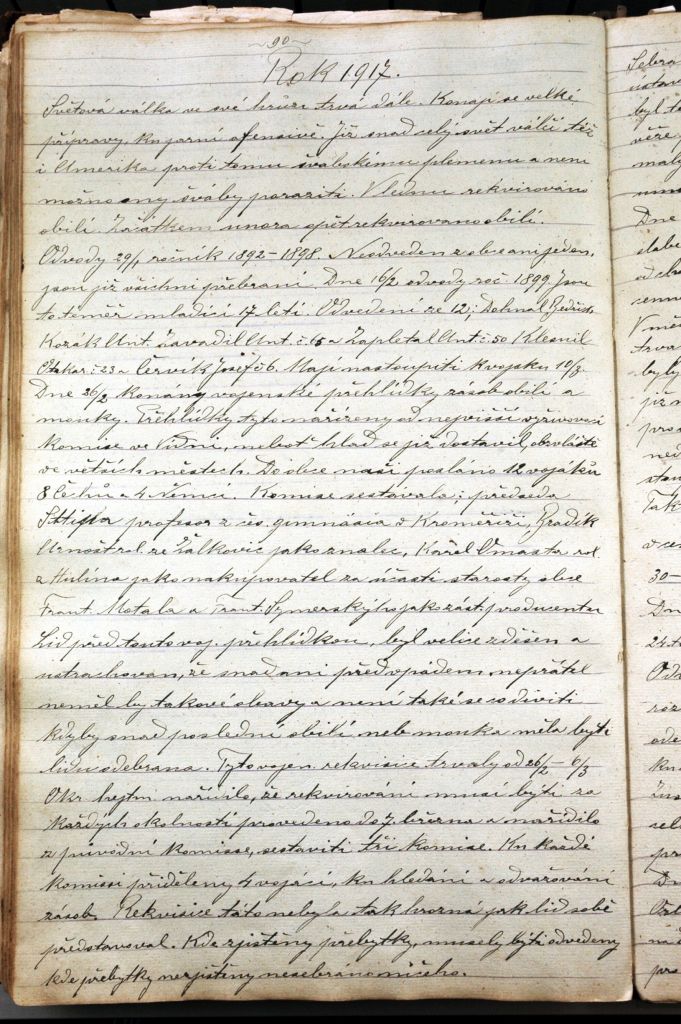 90
Rok 1917.
Světová válka ve své hrůze trvá dále. Konají se velké
přípravy ku jarní ofensivě. Již snad celý svět válčí též
i Amerika proti tomu švabskému plemenu a není
možno ony šváby poraziti. V lednu rekvirováno
obilí. Začátkem unora opět rekvirovano obilí.
Odvody 29/1 ročník 1892-1898. Neodveden z obce ani jeden,
jsou již všichni přebraní. Dne 16/2 odvody roč. 1899. Jsou
to téměř mladíci 17 letí. Odvedeni ze 12; Dohnal
Kozák Ant. Zavadil Ant. č. 15 a Zapletal Ant. č. 50 Klesnil
Otakar č 23 a Červík Josef č 6. Mají nastoupiti k vojsku 10/3
Dne 26/2 konány vojenské přehlídky zásob obilí a
mouky. Přehlídky tyto nařízeny od nejvišší vyživovací
komise ve Vídni, neboť hlad se již dostavil, obzvláště
ve větších městech. Do obce naší posláno 12 vojáků
8 Čechů a 4 Němci. Komise sestávala; předseda
professor z čes. gimnásia v Kroměříži,
Arnošt rol. ze Žalkovic jako znalec, Karel Omasta rol.
z Hulína jako nakupovatel za účasti starosty obce
Frant. Motala a Frant. Symerskýho jako zást. producentu
Lid před touto voj. přehlídkou, byl velice zděšen a
ustrachovan, že snad ani před vpádem nepřátel
neměl by takové obavy a není také se co diviti
kdyby snad poslední obilí nebo mouka měla býti
lidu odebrana. Tyto vojen. rekvisice trvaly od 26/2 - 6/3
Okr. hejtm. nařídilo, že rekvirování musí býti za
každých okolností provedeno do 7. března a nařídilo
z původní komisse, sestaviti tři komise. Ku každé
komissi přiděleny 4 vojáci, ku hledání a odvažování
zásob. Rekvisice táto nebyla tak hrozná jak lid sobě
představoval. Kde zjistěny přebytky, musely býti odvedeny
kde přebytky nezjištěny nesebráno ničeho.